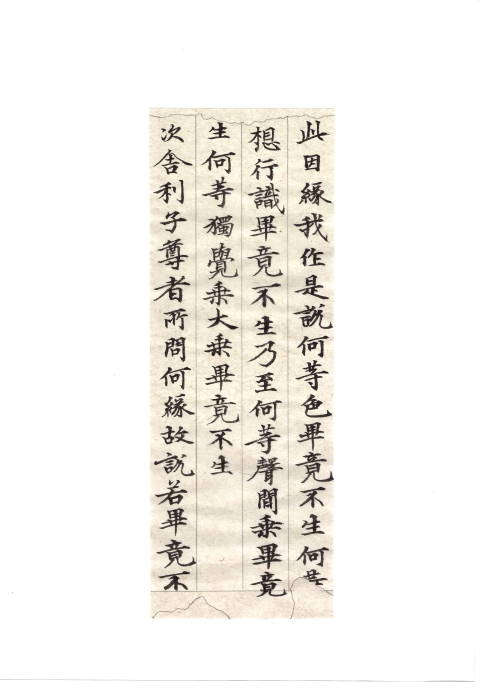 此因緣我作是說何等色畢竟不生何
想行識畢竟不生乃至何等聲聞乘畢竟
生何等獨覺乘大乘畢竟不生
次舍利子尊者所問何緣故說若畢竟不